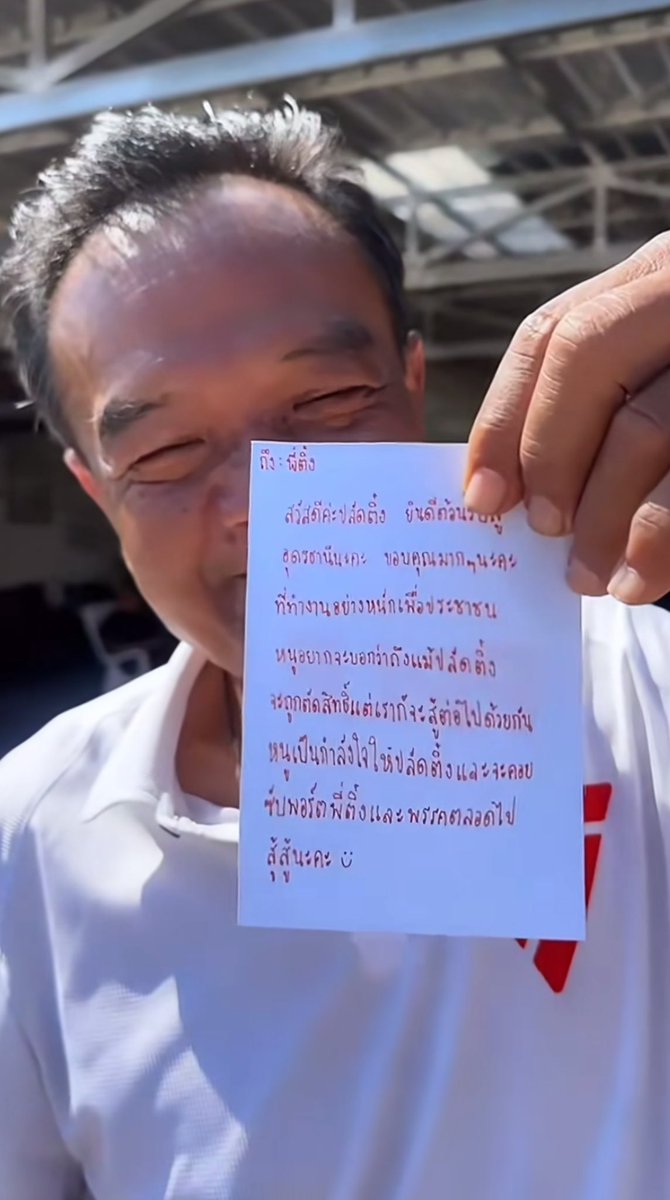 ถึง : พี่ติ่ง
สวัสดีค่ะปลัดติ่ง ยินดีต้อนรับสู่
อุดรธานีนะคะ ขอบคุณมากๆนะคะ
ที่ทำงานอย่างหนักเพื่อประชาชน
หนูอยากจะบอกว่าถึงแม้ปลัดติ่ง
จะถูกตัดสิทธิ์แต่เราก็จะสู้ต่อไปด้วยกัน
หนูเป็นกำลังใจให้ปลัดติ่งและจะคอย
ซัปพอร์ตพี่ติ่งและพรรคตลอดไป
สู้สู้นะคะ